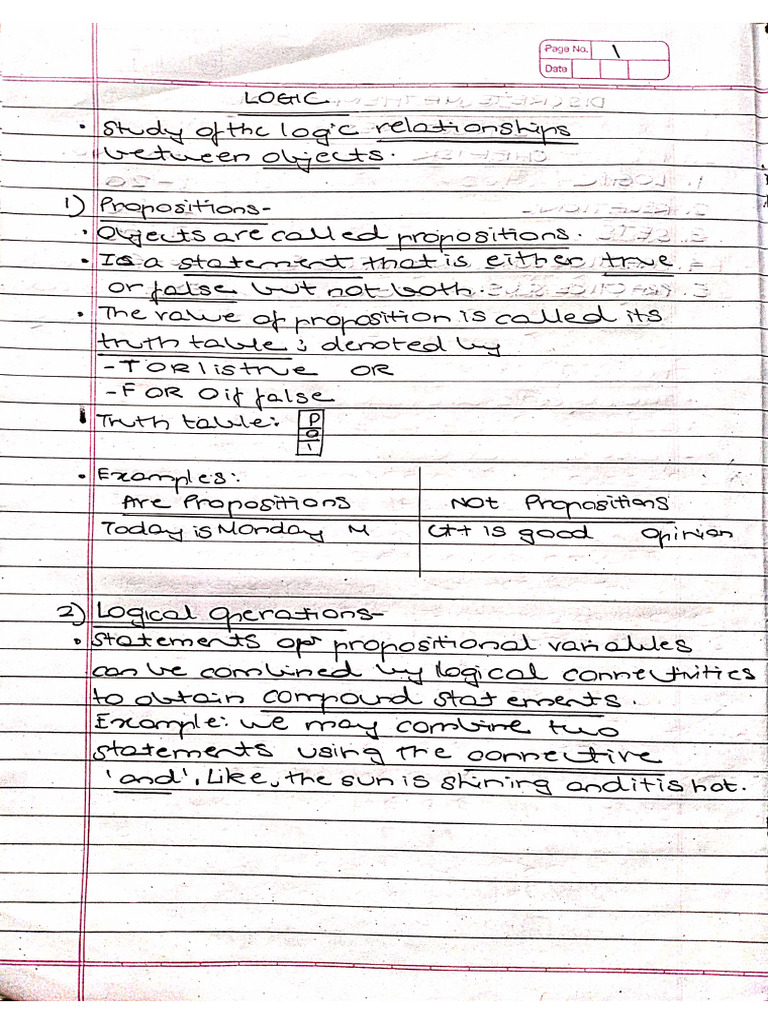 Page No. 1
Date
LOGIC
• Study of the logic relationships
between objects.
1) Propositions-
• Objects are called propositions.
• Is a statement that is either true
or false but not both.
• The value of proposition is called its
truth table; denoted by
- T OR 1 is true OR
- F OR 0 if false
Truth table: P
0
1
• Examples:
Are Propositions Not Propositions
Today is Monday M C++ is good opinion
2) Logical Operations-
• Statements or propositional variables
can be combined by logical connectivities
to obtain compound statements.
Example: we may combine two
statements using the connective
'and'. Like, the sun is shining and it is hot.